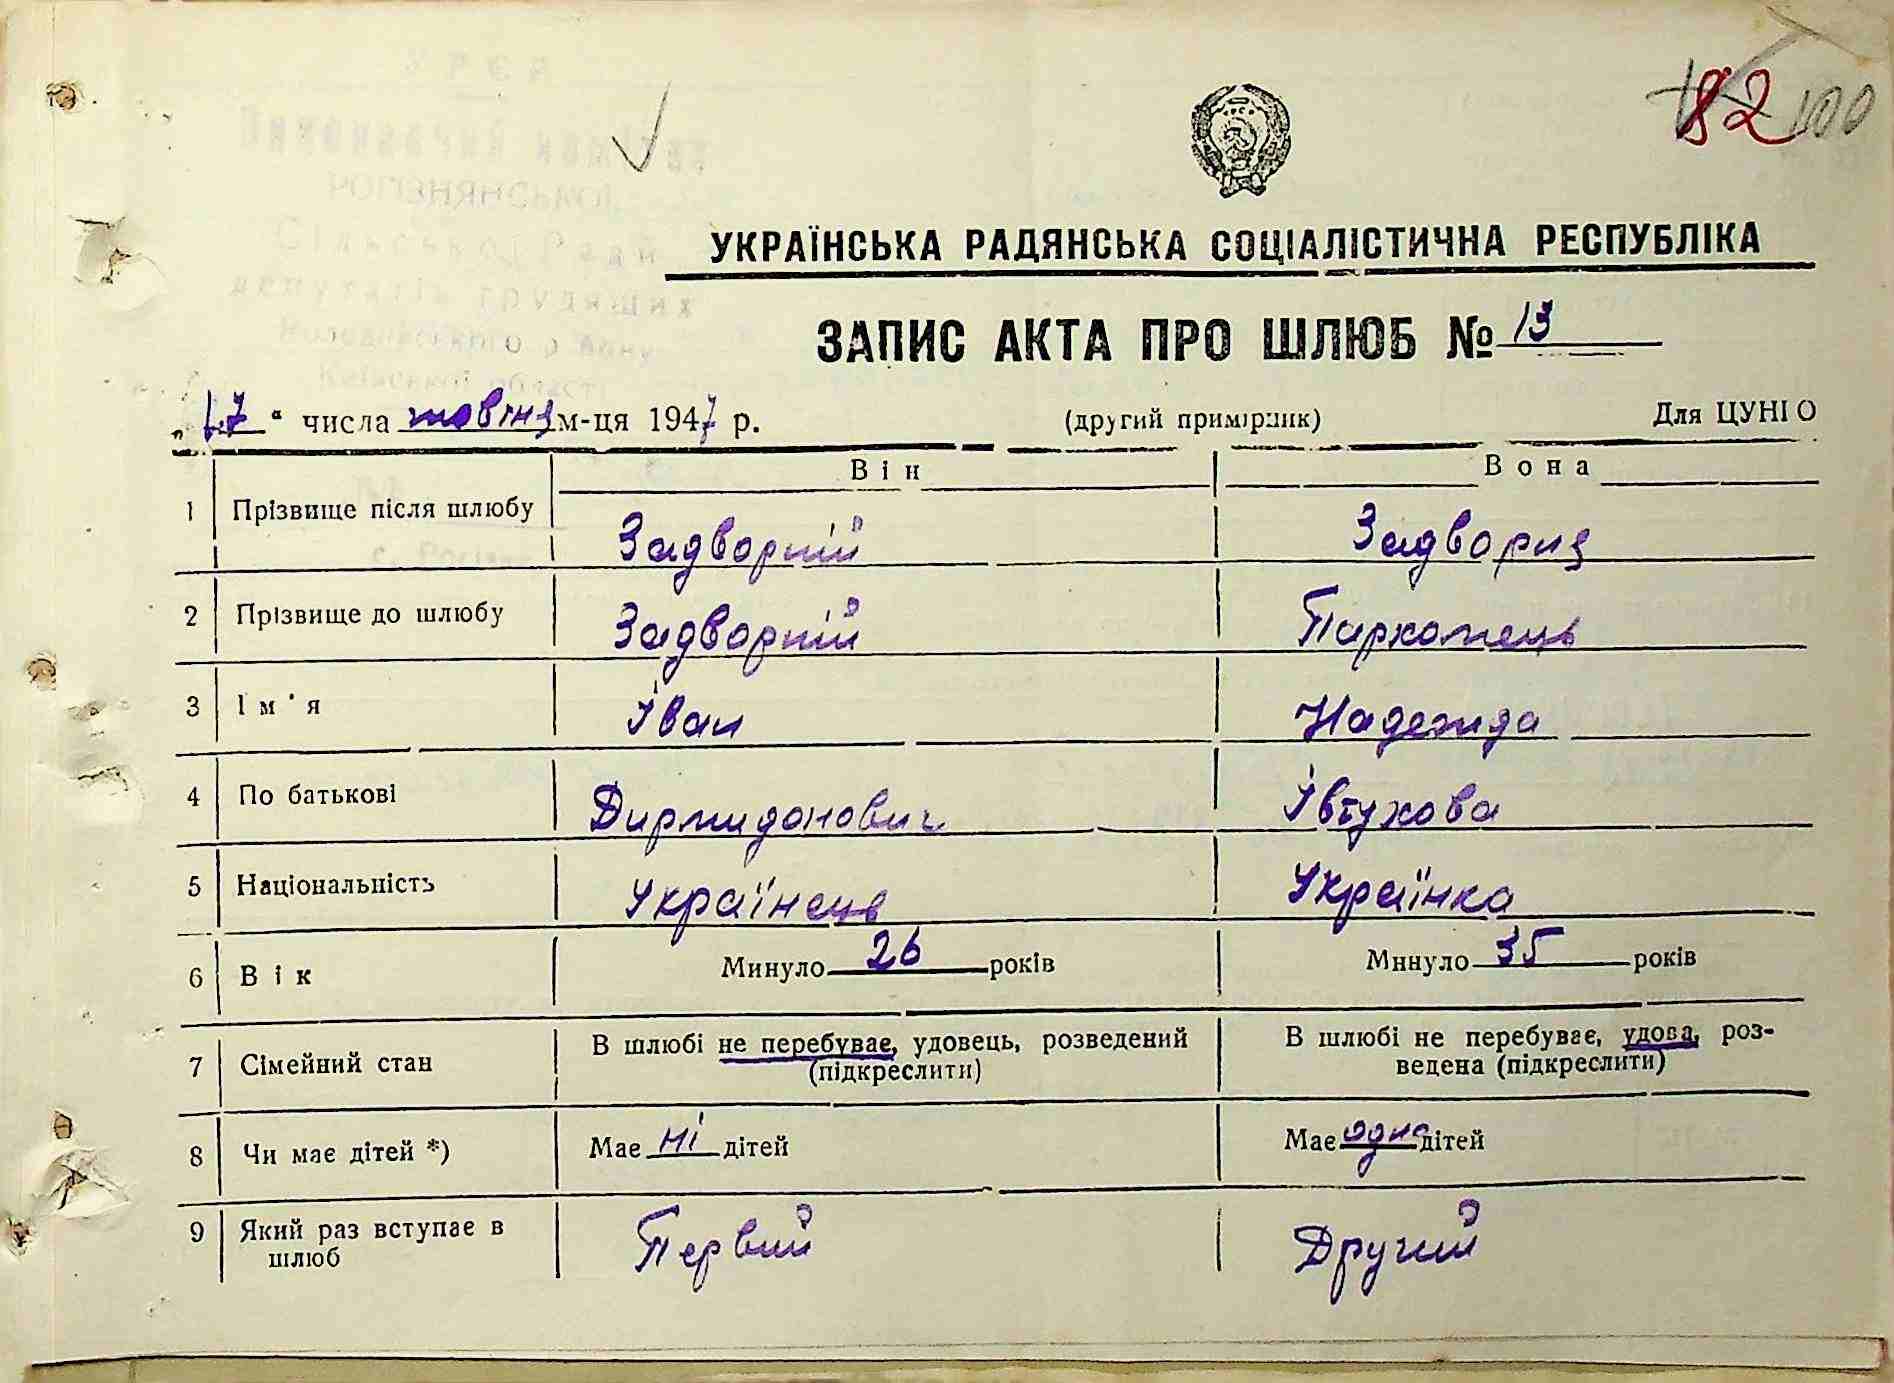 82 100
УКРАЇНСЬКА РАДЯНСЬКА СОЦІАЛІСТИЧНА РЕСПУБЛІКА
ЗАПИС АКТА ПРО ШЛЮБ № 13
„17“ числа жовтня м-ця 1947 р. (другий примірник) Для ЦУНГО
Він Вона
1 Прізвище після шлюбу Задворній Задворня
2 Прізвище до шлюбу Задворній Пархомець
3 Ім'я Іван Надежда
4 По батькові Дирмидонович Івтухова
5 Національність Українець Українка
6 Вік Минуло 26 років Минуло 35 років
7 Сімейний стан В шлюбі не перебуває, удовець, розведений (підкреслити) В шлюбі не перебуває, удова, роз-
ведена (підкреслити)
8 Чи має дітей *) Має ні дітей Має одно дітей
9 Який раз вступає в шлюб Первий Другий